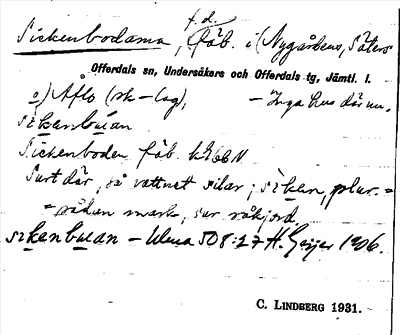 Sickenbodarna, f.d. fäb. i (Nygårdens, Säters
Offerdals sn, Undersåkers och Offerdals tg, Jämtl. l.
o) Åflo (sk-lag), - Inga hus där nu.
Sickenboden fäb. kZ66N
Surt där, så vattnet silar; plur. =
= såden mark, sur
- Ulma 508:27 H. Geijer 1906.
C. LINDBERG 1931.